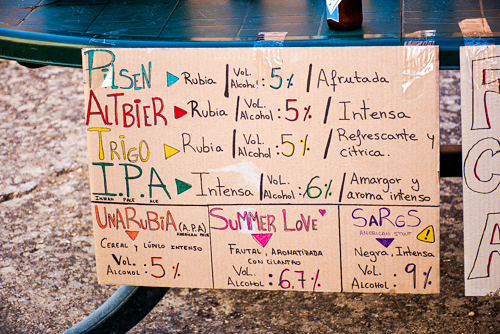 PILSEN ▶ Rubia / Vol. Alcohol : 5% / Afrutada
ALTBIER ▶ Rubia / Vol. Alcohol : 5% / Intensa
TRIGO ▶ Rubia / Vol. Alcohol : 5% / Refrescante y cítrica.
I.P.A ▶ Intensa / Vol. Alcohol : 6% / Amargor y aroma intenso
INDIAN PALE ALE
UNARUBIA (A.P.A)
AMERICAN PALE
CEREAL Y LÚPULO INTENSO
VOL. ALCOHOL : 5%
SUMMER LOVE
FRUTAL, AROMATIZADA CON CILANTRO
VOL. ALCOHOL : 6.7%
SARGS
AMERICAN STOUT
NEGRA, INTENSA
VOL. ALCOHOL : 9%